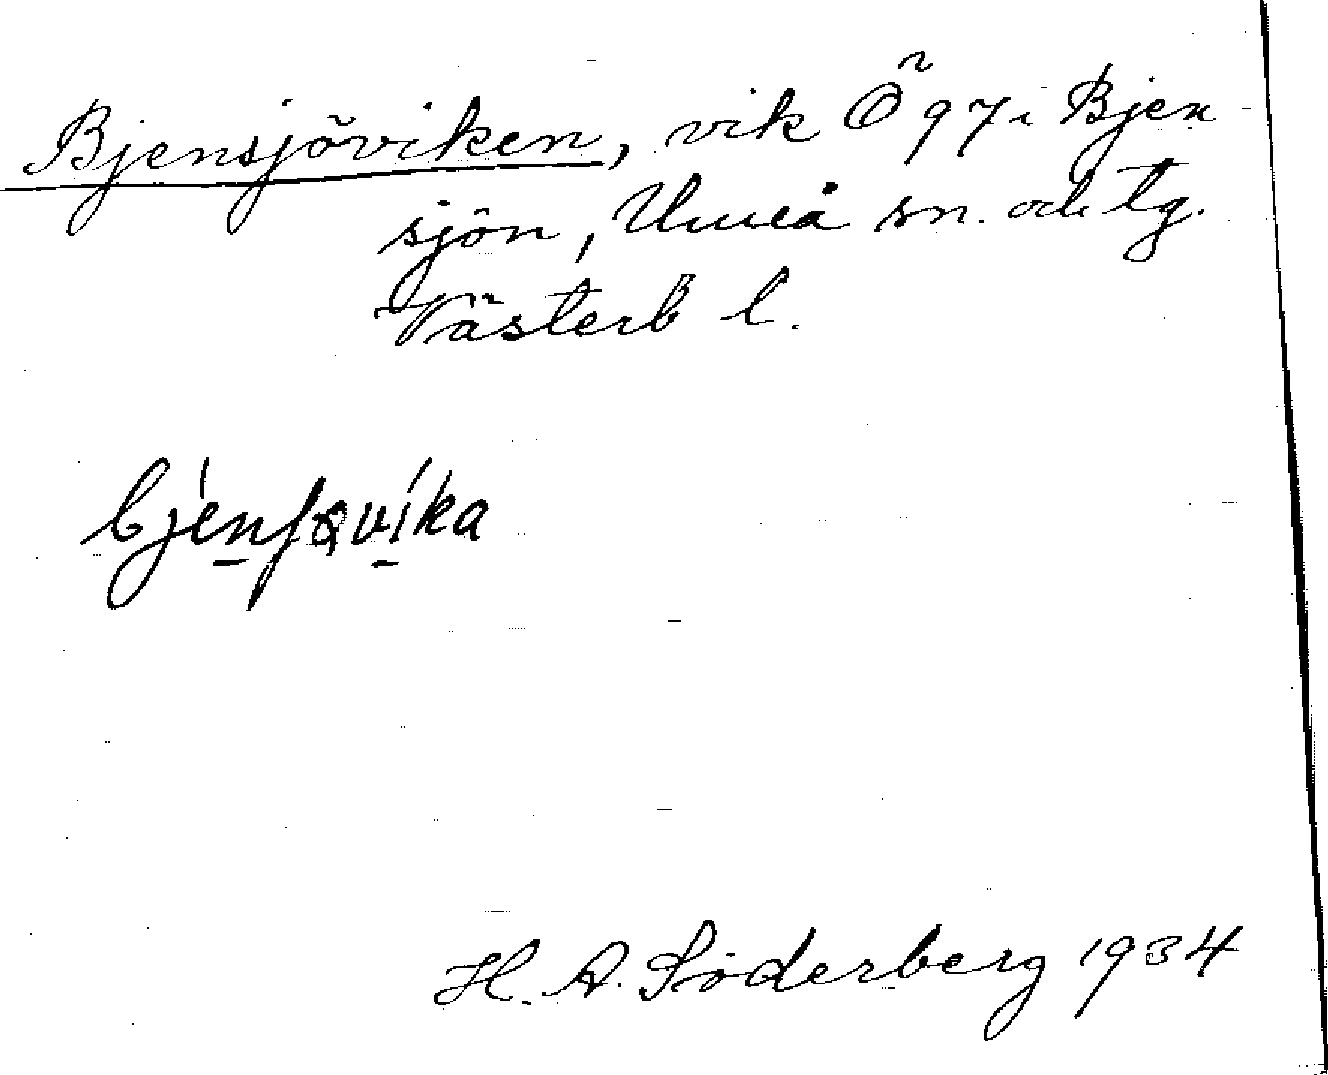 Bjensjöviken, vik Ö 97 i Bjen-
sjön, Umeå sn. och tg.
Västerb l.
bjenʃøvika
H. A. Söderberg 1934